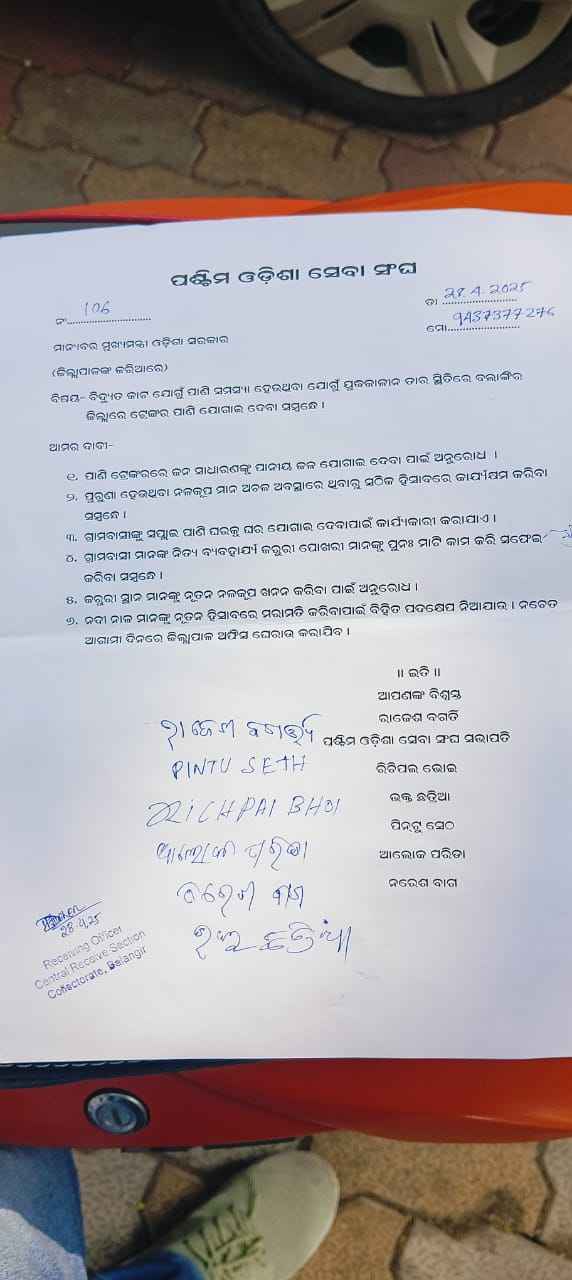 ପଶ୍ଚିମ ଓଡ଼ିଶା ସେବା ସଂଘ
ନଂ.............................. 106
ତା .......................... 28.4.2025
ମୋ......................... 9437377276
ମାନ୍ୟବର ମୁଖ୍ୟମନ୍ତ୍ରୀ ଓଡ଼ିଶା ସରକାର
(ଜିଲ୍ଲାପାଳଙ୍କ ଜରିଆରେ)
ବିଷୟ- ବିଦ୍ୟୁତ କାଟ ଯୋଗୁଁ ପାଣି ସମସ୍ୟା ହେଉଥିବା ଯୋଗୁଁ ଯୁଦ୍ଧକାଳୀନ ତାର ସ୍ଥିତିରେ ବଲାଙ୍ଗିର
ଜିଲ୍ଲାରେ ଟ୍ରେଙ୍କର ପାଣି ଯୋଗାଇ ଦେବା ସମ୍ବନ୍ଧେ ।
ଆମର ଦାବୀ-
୧. ପାଣି ଟ୍ରେଙ୍କରରେ ଜନ ସାଧାରଣଙ୍କୁ ପାନୀୟ ଜଳ ଯୋଗାଇ ଦେବା ପାଇଁ ଅନୁରୋଧ ।
୨. ପୁରୁଣା ହେଉଥିବା ନଳକୂପ ମାନ ଅଚଳ ଅବସ୍ଥାରେ ଥିବାରୁ ସଠିକ ହିସାବରେ କାର୍ଯ୍ୟକ୍ଷମ କରିବା
ସମ୍ବନ୍ଧେ ।
୩. ଗ୍ରାମବାସୀଙ୍କୁ ସପ୍ଲାଇ ପାଣି ଘରକୁ ଘର ଯୋଗାଇ ଦେବାପାଇଁ କାର୍ଯ୍ୟକାରୀ କରାଯାଏ ।
୪. ଗ୍ରାମବାସୀ ମାନଙ୍କ ନିତ୍ୟ ବ୍ୟବହାର୍ଯ୍ୟ ଜରୁରୀ ପୋଖରୀ ମାନଙ୍କୁ ପୁନଃ ମାଟି କାମ କରି ସଫେଇ
କରିବା ସମ୍ବନ୍ଧେ ।
୫. ଜରୁରୀ ସ୍ଥାନ ମାନଙ୍କୁ ନୂତନ ନଳକୂପ ଖନନ କରିବା ପାଇଁ ଅନୁରୋଧ ।
୬. ନଦୀ ନାଳ ମାନଙ୍କୁ ନୂତନ ହିସାବରେ ମରାମତି କରିବାପାଇଁ ବିହିତ ପଦକ୍ଷେପ ନିଆଯାଉ । ନଚେତ
ଆଗାମୀ ଦିନରେ ଜିଲ୍ଲାପାଳ ଅଫିସ ଘେରାଉ କରାଯିବ ।
॥ ଇତି ॥
ଆପଣଙ୍କ ବିଶ୍ୱସ୍ତ
ରାଜେଶ ବଗର୍ତି
ପଶ୍ଚିମ ଓଡ଼ିଶା ସେବା ସଂଘ ସଭାପତି
ରିଚିପଲ ଭୋଇ
ଭକ୍ତ ଛତ୍ରିଆ
ପିନ୍ଟୁ ସେଠ
ଆଲୋକ ପରିଡା
ନରେଶ ବାଗ
ରାଜେଶ ବଗର୍ତ୍ତି
PINTU SETH
RICHPAI BHOI
ଆଲୋକ ପରିଡା
ନରେଶ ବାଗ
ଭକ୍ତ ଛତ୍ରିଆ
28.4.25
Receiving Officer
Central Receive Section
Collectorate, Balangir